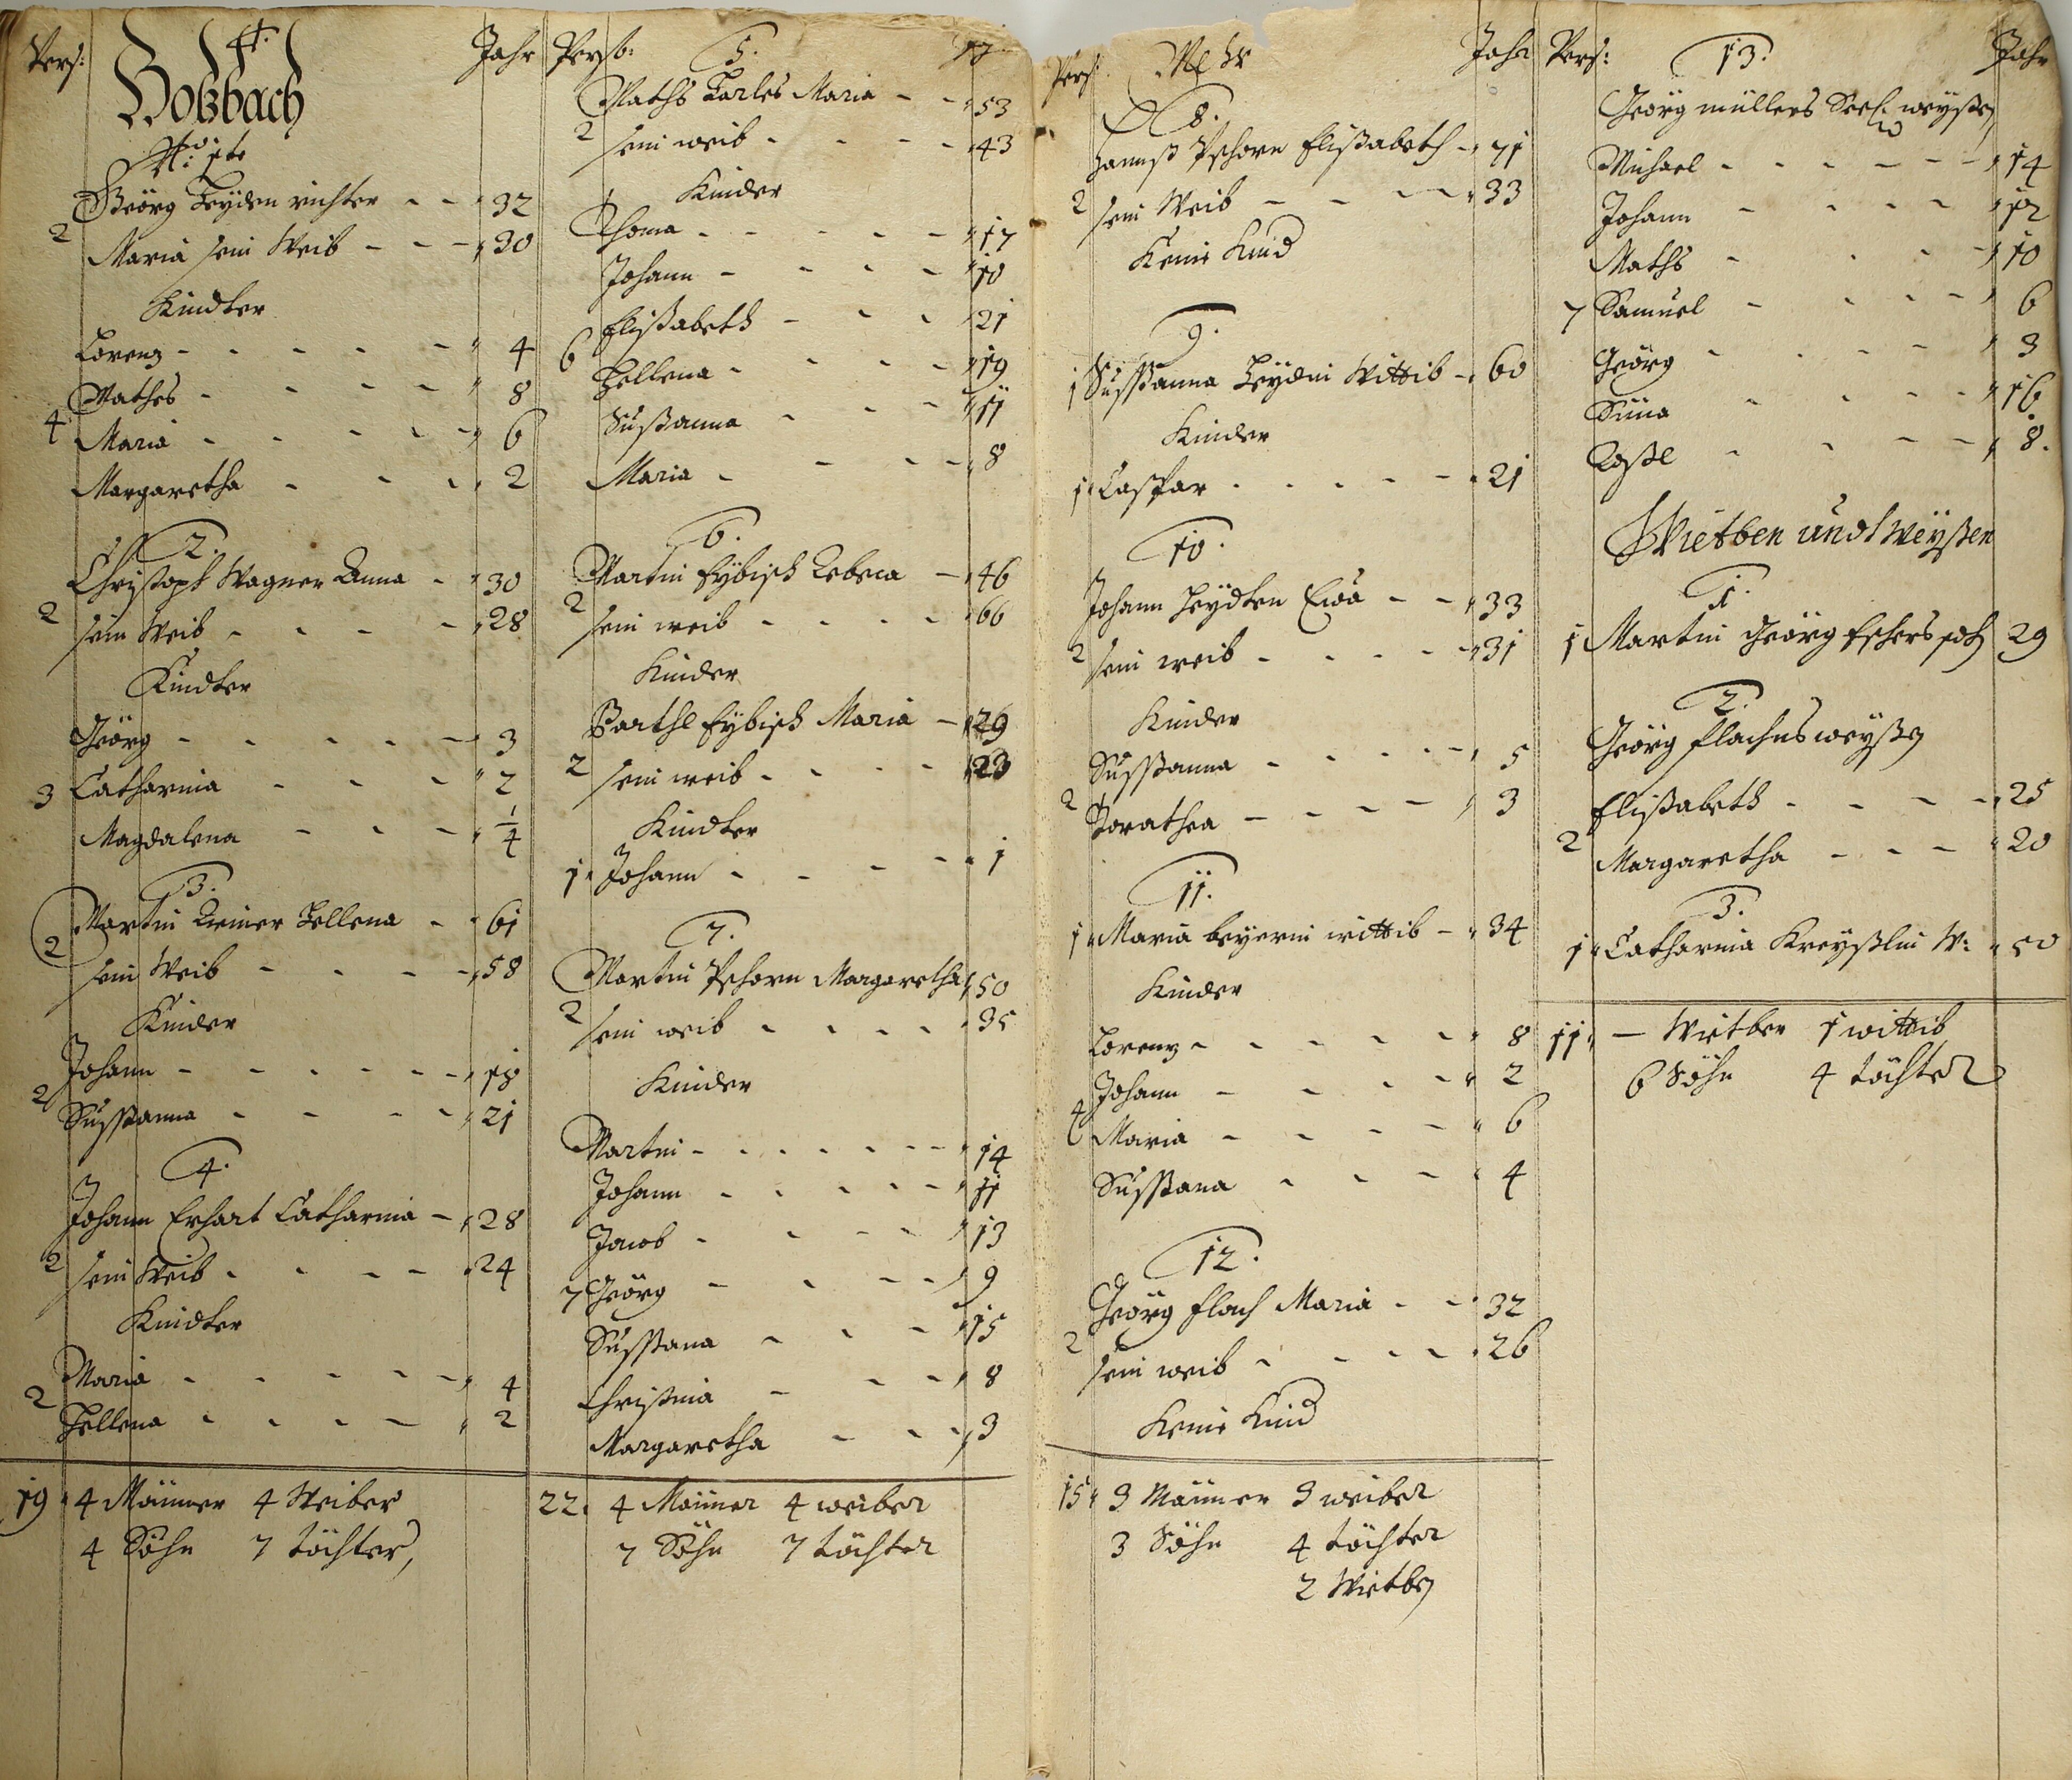 Pers: Jahr
#.
Holzbach
No: 1te
Geörg Heyden richter - - " 32
2
Maria sein Weib - - - " 30
Kindter
Lorenz - - - - - " 4
Mathes - - - - " 8
4
Maria - - - - - " 6
Margaretha - - - " 2
2.
Christoph Wagner Anna - " 30
2
sein Weib - - - - " 28
Kindter
Geörg - - - - - 3
3 Catharina - - - " 2
Magdalena - - - " 1/4
3.
Martin Reiner Hellena - " 61
2
sein Weib - - - - " 58
Kinder
Johann - - - - - - " 18
2
Susstanna - - - - " 21
4.
Johann Erhart Catharina - " 28
2
sein Weib - - - - " 24
Kindter
Maria - - - - - " 4
2
Hellena - - - - " 2
19 " 4 Männer 4 Weiber
4 Söhn 7 töchter,
Perso:
5.
Maths Karles Maria - - " 53
2
sein weib - - - - " 43
Kinder
Thoma - - - - - " 17
Johann - - - - " 10
Elisabeth - - - " 21
6
Hellena - - - - " 19
Susanna - - - " 11
Maria - - - - " 8
6.
Martin Eybisch Rebeca - " 46
2
sein weib - - - - " 66
Kinder
Barthl Eybisch Maria - " 29
2
sein weib - - - - " 23
Kindter
1 " Johann - - - - " 1
7.
Martin Pschorn Margaretha " 50
2
sein weib - - - - " 35
Kinder
Martin - - - - - - " 14
Johann - - - - - " 11
Jacob - - - - " 13
7 Geörg - - - - " 9
Susstana - - - " 15
Christina - - - " 8
Margaretha - - - " 3
22. 4 Männer 4 weiber
7 Söhn 7 töchter
Pers: Jahr
8.
Hannß Pschorn Elisabeth - " 71
2
sein Weib - - - - " 33
Keine Kind
9.
1 Susstanna Heydin Wittib - " 60
Kinder
1 " Caspar - - - - - " 21
10.
Johann Heydten Eva - - " 33
2
sein weib - - - - " 31
Kinder
Susstanna - - - - - " 5
2
Dorathea - - - - " 3
11.
1 " Maria beyerin wittib - " 34
Kinder
Lorenz - - - - - - " 8
Johann - - - - - " 2
4
Maria - - - - - " 6
Susstana - - - - " 4
12.
Geörg Flach Maria - - " 32
2
sein weib - - - - " 26
Keine Kind
15 " 3 Männer 3 weiber
3 Söhn 4 töchter
2 Wietbn
Pers: 13. Jahr
Geörg müllers Seel: weyßen
Michael - - - - - - " 14
Johann - - - - " 12
Maths - - - - " 10
7 Samuel - - - - " 6
Geörg - - - - " 3
- - - - " 16
- - - - " 8.
Wietben undt Weyßen
1.
1 Martin Geörg 29
2.
Geörg Flachns weyßen
Elisabeth - - - - " 25
2
Margaretha - - - " 20
3.
1 " Catharina Kreyßlin W: " 50
11 " - Wietber 1 wittib
6 Söhn 4 töchter